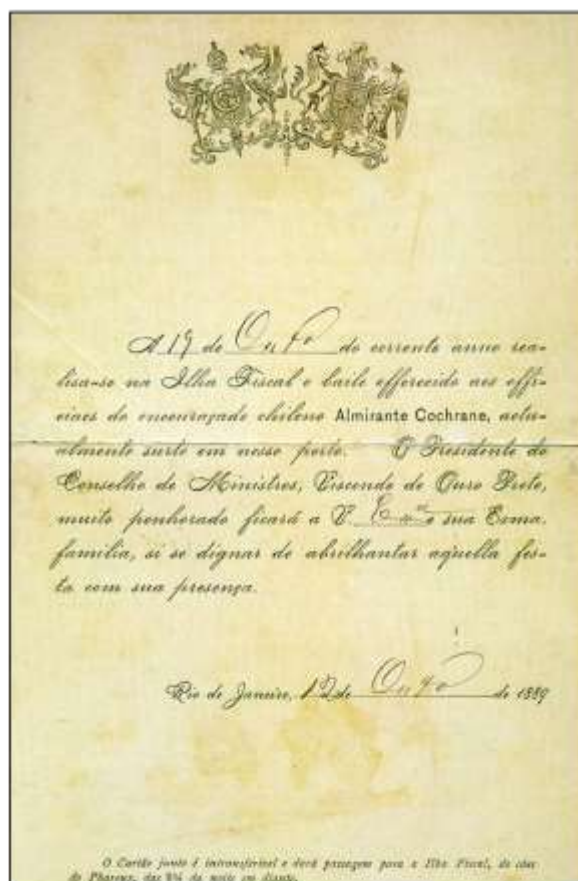 A 19 de Outº do corrente anno rea-
lisa-se na Ilha Fiscal o baile offerecido aos offi-
ciaes do encouraçado chileno Almirante Cochrane, actu-
almente surto em nosso porto. O Presidente do
Conselho de Ministros, Visconde de Ouro Preto,
muito penhorado ficará a V. Exª e sua Exma.
familia, si se dignar de abrilhantar aquella fes-
ta com sua presença.
Rio de Janeiro, 12 de Outº de 1889
O Cartão junto é intransferivel e dará passagem para a Ilha Fiscal, do cáes
do Pharoux, das 8½ da noite em diante.